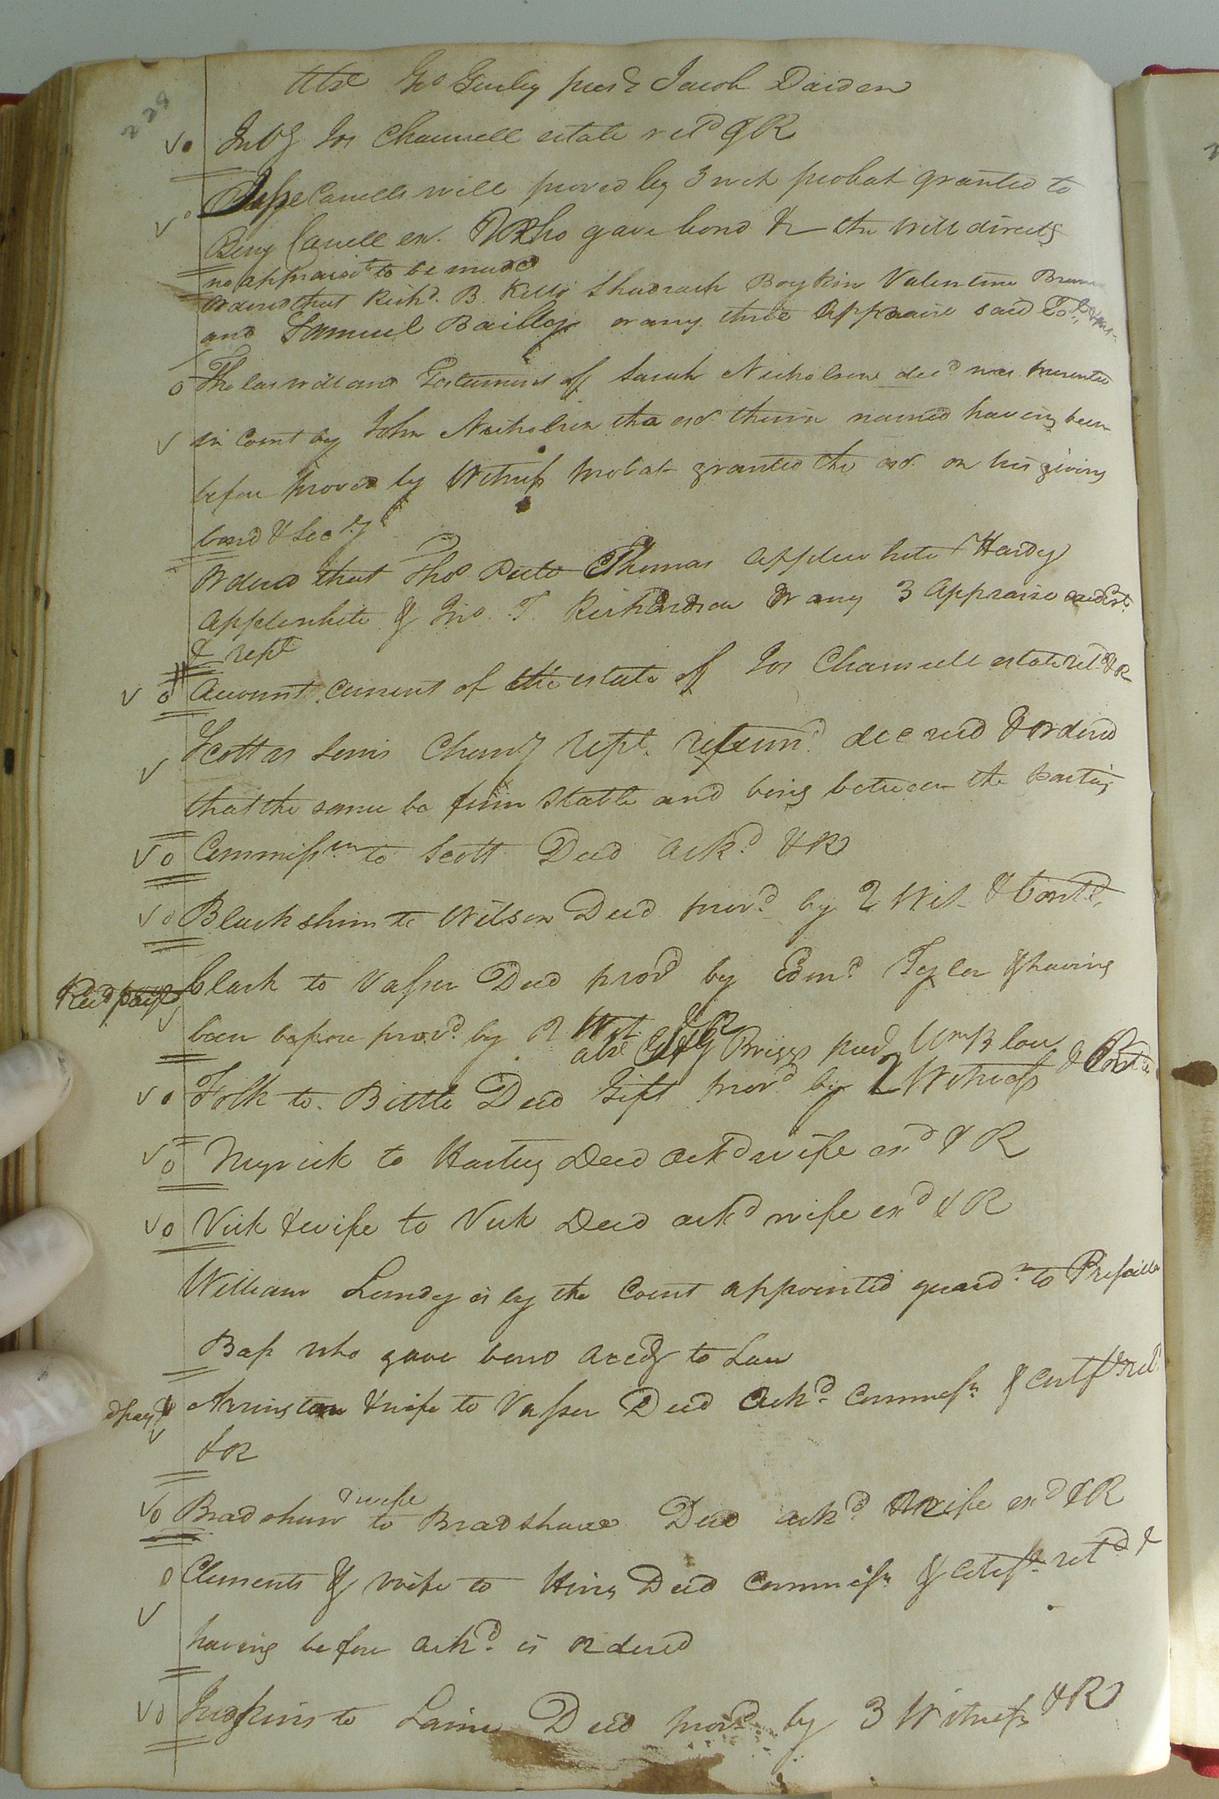 228
Abst Geo Gurley pres.d Jacob Darden
Inv.y Jos Channell estate ret.d & R
Jesse Carrells will proved by 3 wit probat granted to
Benj Carrell ex. Who gave bond & the will directs
no appraisem.t to be made
Ordered that Rich.d B. Kello Shadrach Boykin Valentine
and Samuel Bailley or any three appraise said
The last will and Testament of Sarah Nicholson dec.d was presented
in Court by John Nicholson the exr therein named having been
before proved by Witness probat granted the exr. on his giving
bond & Sec.ty
Ordered that Tho.s Peete Thomas Applewhite Hardy
Applewhite & Jno. T. Richardson or any 3 appraise
& rept
Account Current of the estate of Jos Channell estate ret.d & R
Scott vs Chan.y rept. return.d decreed & Ordered
that the same be firm stable and being between the parties
Commiss.rs to Scott Deed ack.d & R
Blackshim to Wilson Deed prov.d by 2 Wit & Cont.d
Clark to Vasser Deed prov.d by Edm.d Tyler & having
been before prov.d by 2 Wit & R
abst Briggs pres.d
Folk to Bittle Deed Gift prov.d by 2 Witness & Cont.d
Myrick to Deed ack.d wife ex.d & R
Vick & wife to Vick Deed ack.d wife ex.d & R
William Lundy is by the Court appointed guard.n to Priscilla
Bass who gave bond accd.g to Law
Arrington & wife to Vasser Deed ack.d Commiss.n & Certf. ret.d
& R
Bradshaw & wife to Bradshaw Deed ack.d & wife ex.d & R
Clements & wife to King Deed Commiss.n & Certf. ret.d &
having before ack.d is ordered
Judkins to Laine Deed prov.d by 3 Witness & R